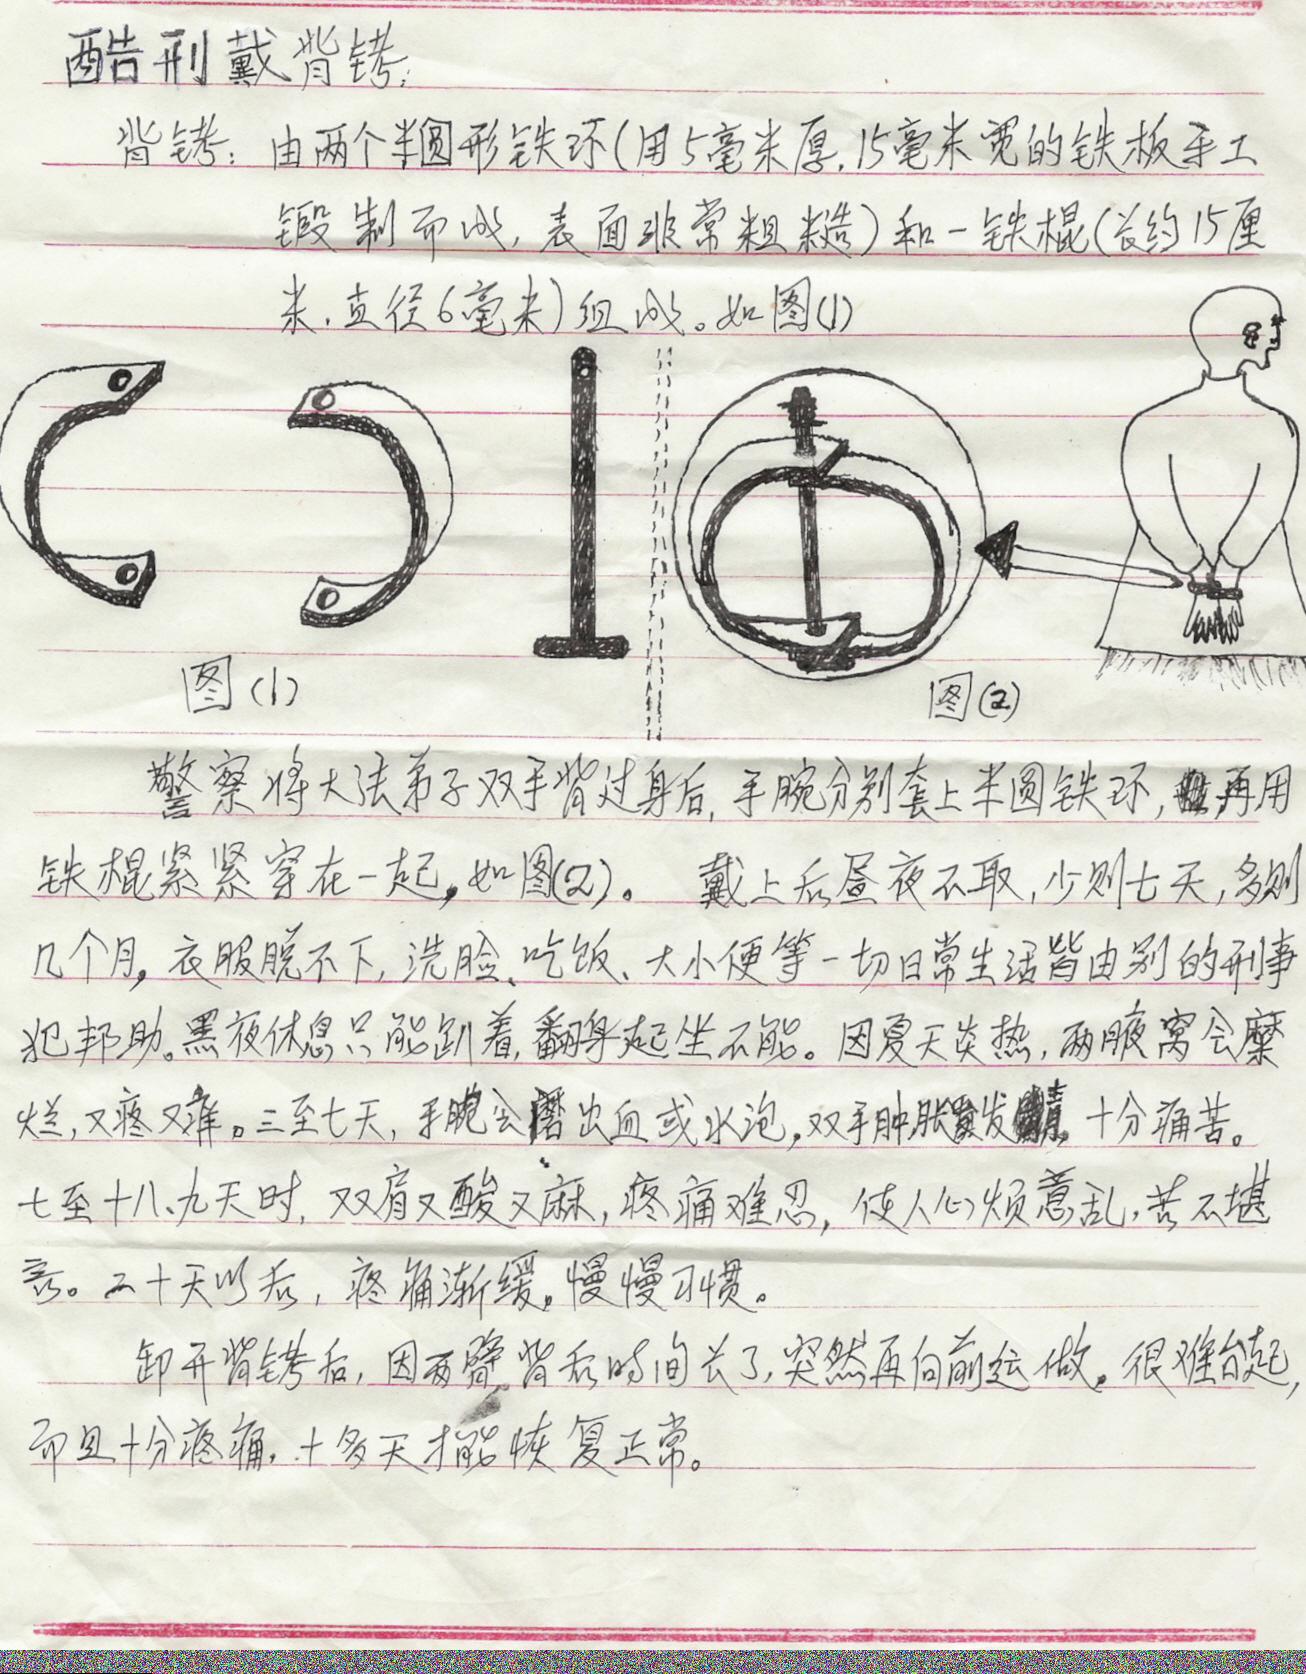 酷刑戴背铐:
背铐：由两个半圆形铁环(用5毫米厚，15毫米宽的铁板手工
锻制而成，表面非常粗糙)和一铁棍(长约15厘
米，直径6毫米)组成。如图(1)
图(1)
图(2)
警察将大法弟子双手背过身后，手腕分别套上半圆铁环，再用
铁棍紧紧穿在一起，如图(2)。戴上后昼夜不取，少则七天，多则
几个月，衣服脱不下，洗脸、吃饭、大小便等一切日常生活皆由别的刑事
犯邦助。黑夜休息只能趴着，翻身起坐不能。因夏天炎热，两腋窝会糜
烂，又疼又难。三至七天，手腕会磨出血或水泡，双手肿胀发，十分痛苦。
七至十八、九天时，双肩又酸又麻，疼痛难忍，使人心烦意乱，苦不堪
言。二十天以后，疼痛渐缓，慢慢习惯。
卸开背铐后，因两臂背后时间长了，突然再向前运做，很难台起，
而且十分疼痛，十多天才能恢复正常。